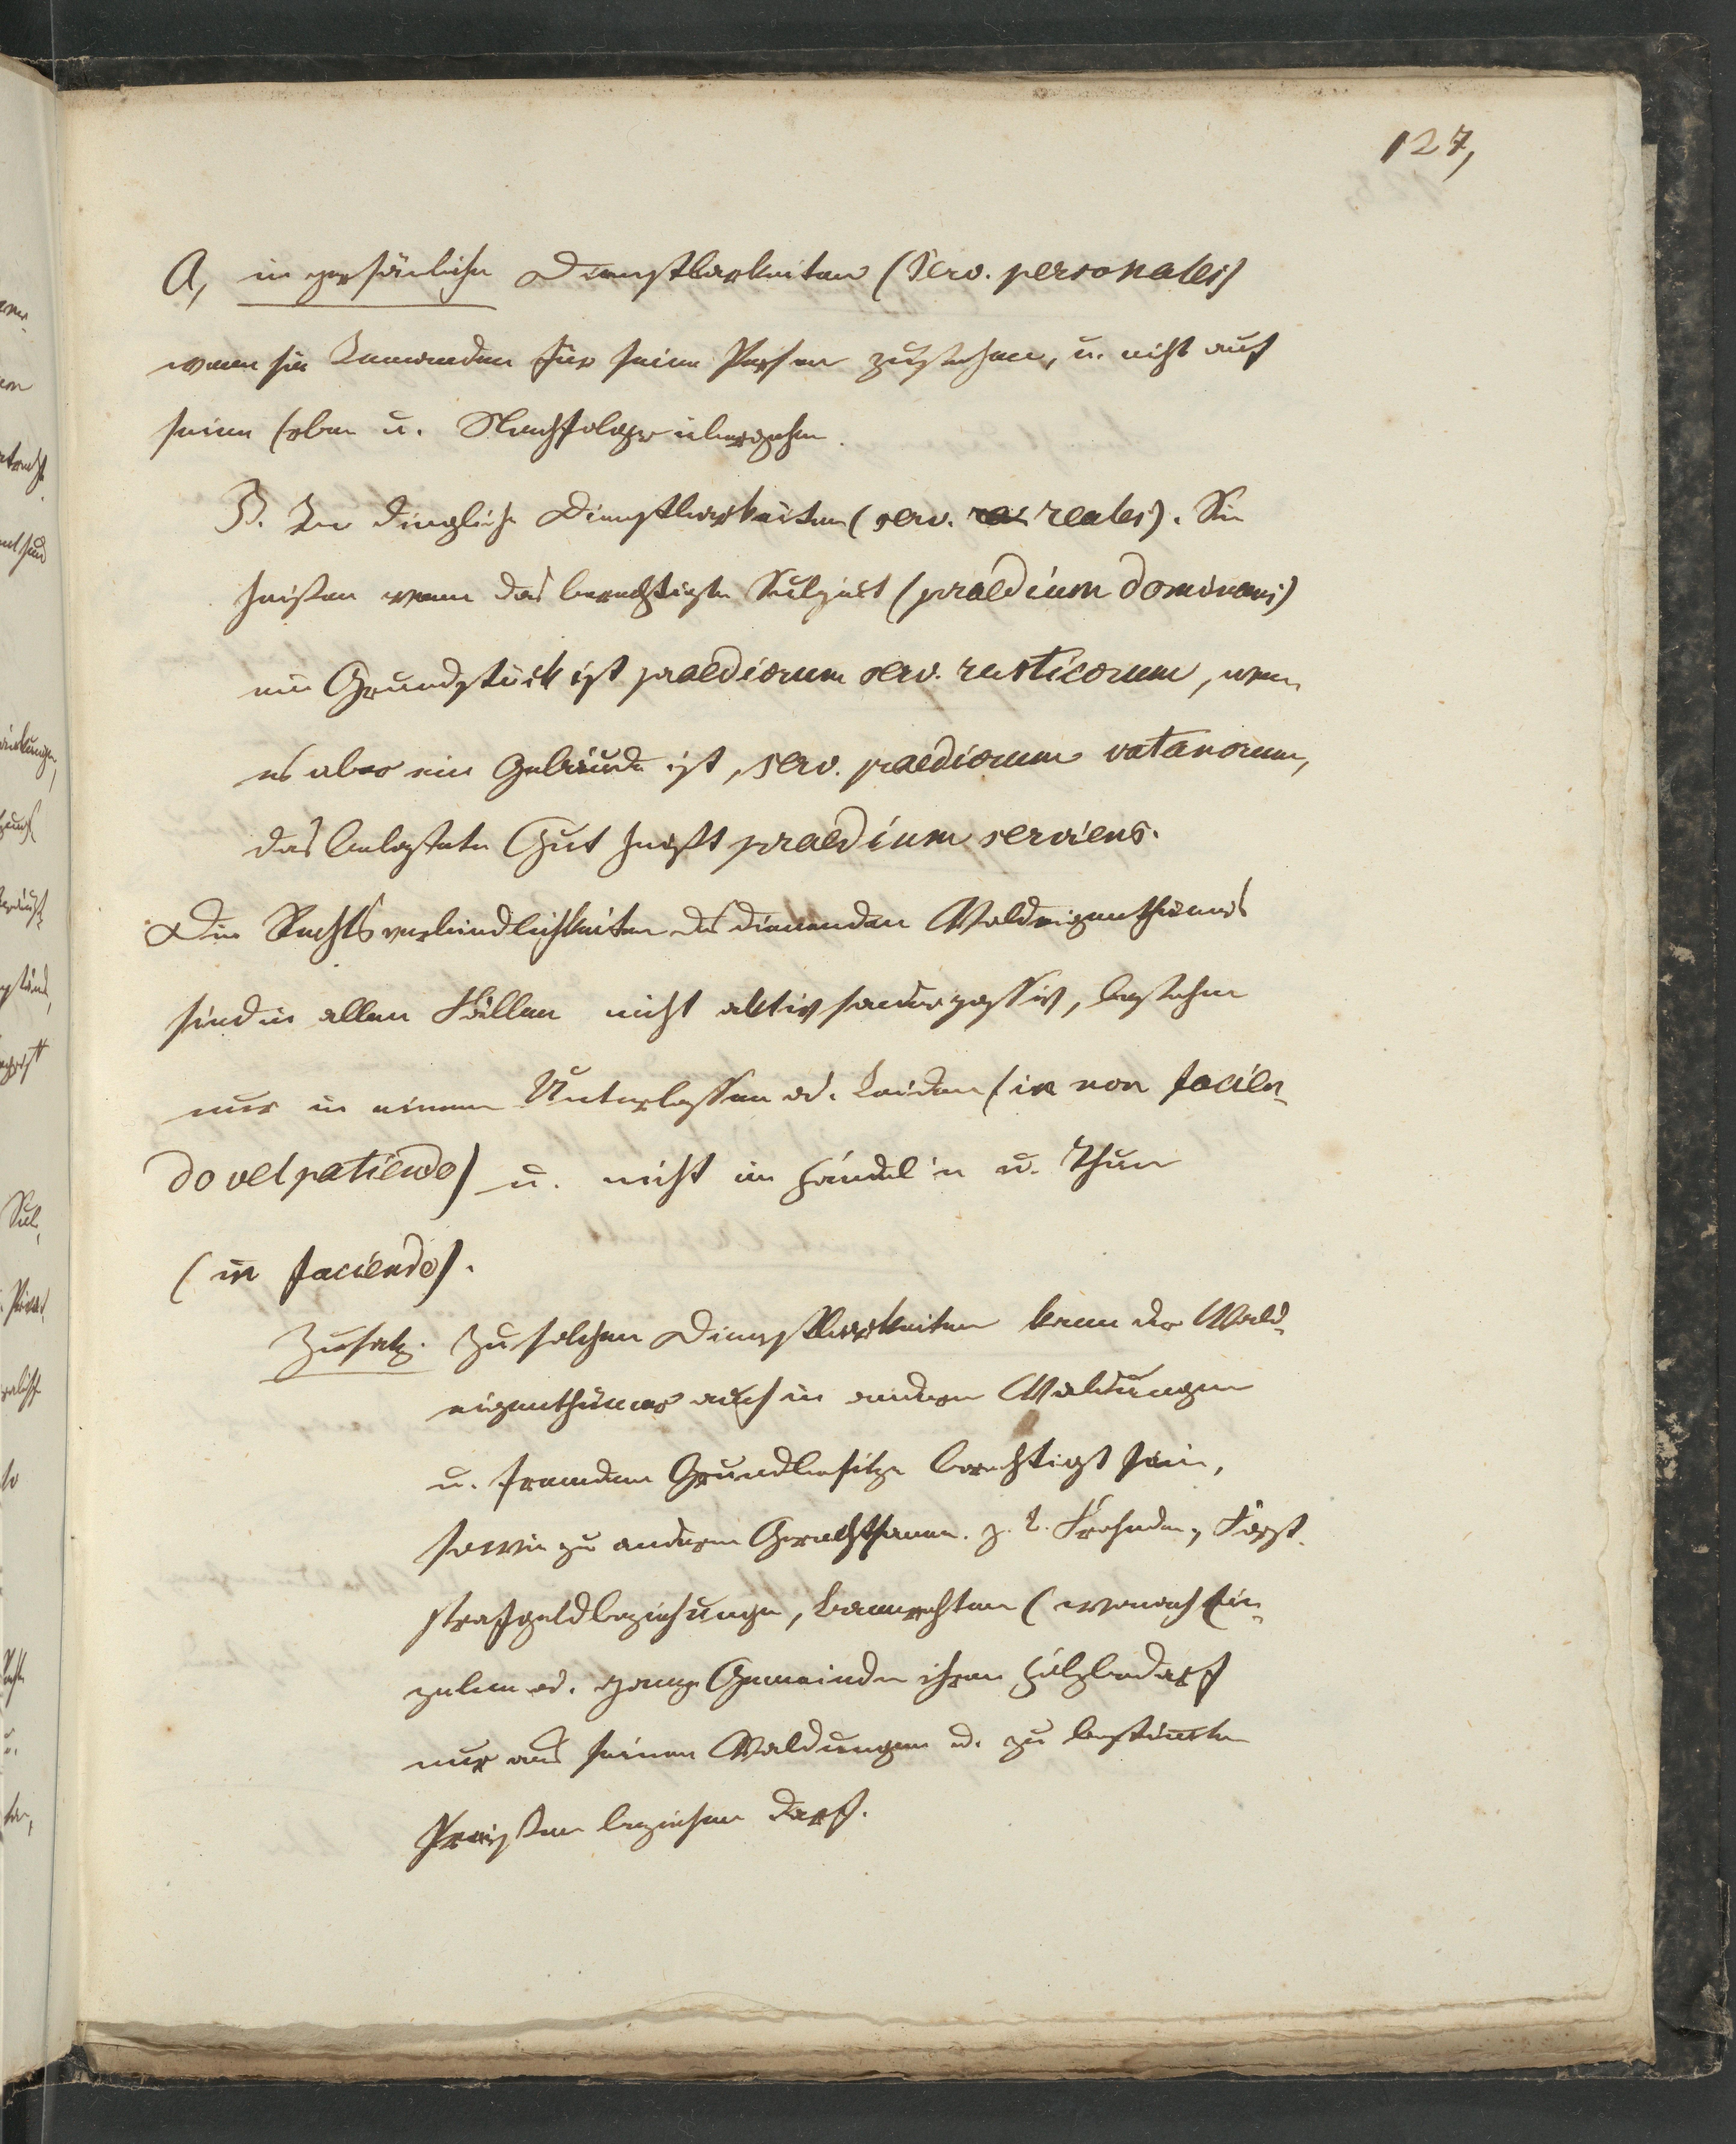 127,
A, in persönliche Dienstbarkeiten (Serv. personales)
wenn sie Jemanden für seine Person zustehen, u. nicht auf
seine Erben u. Nachfolger übergehen.
B. In dingliche Dienstbarkeiten (serv. reales). Sie
heißen wenn das berechtigte Subject (praedium dominans)
ein Grundstück ist praediorum serv. rusticorum, wenn
es aber ein Gebäude ist, serv. praediorum vatanorum,
das belastete Gut heißt praedium serviens.
Die Rechtsverbindlichkeiten des dienenden Waldeigenthums
sind in allen Fällen nicht aktiv sondern passiv, bestehen
nur in einem Unterlassen od. Leiden (in non facien-
do vel patiendo) u. nicht im Handeln u. Thun
(in faciendo).
Zusatz. Zu solchen Dienstbarkeiten kann der Wald-
eigenthümer auch in andern Waldungen
u. fremdem Grundbesitze berechtigt sein,
sowie zu anderen Gerechtsamen. z. B. Frohnden, Forst-
strafgeldbeziehungen, Bannrechten (wonach Ein-
zelne od. ganze Gemeinden ihren Holzbedarf
nur aus seinen Waldungen u. zu bestimten
Preißen beziehen darf.